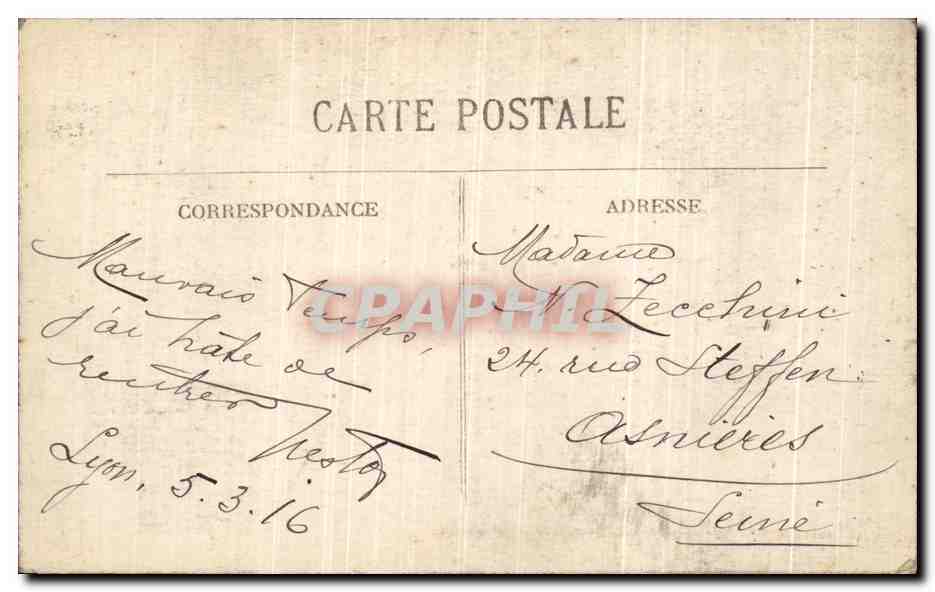 CARTE POSTALE
CORRESPONDANCE
Mauvais temps,
j'ai hâte de
rentrer Nestor
Lyon, 5.3.16
ADRESSE
Madame
N. Zecchini
24. rue Steffen
Asnières
Seine
CPAPHIL